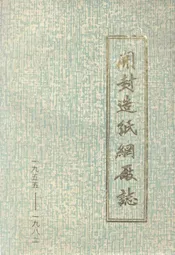 開封造紙網厰誌
一九五五——一九八